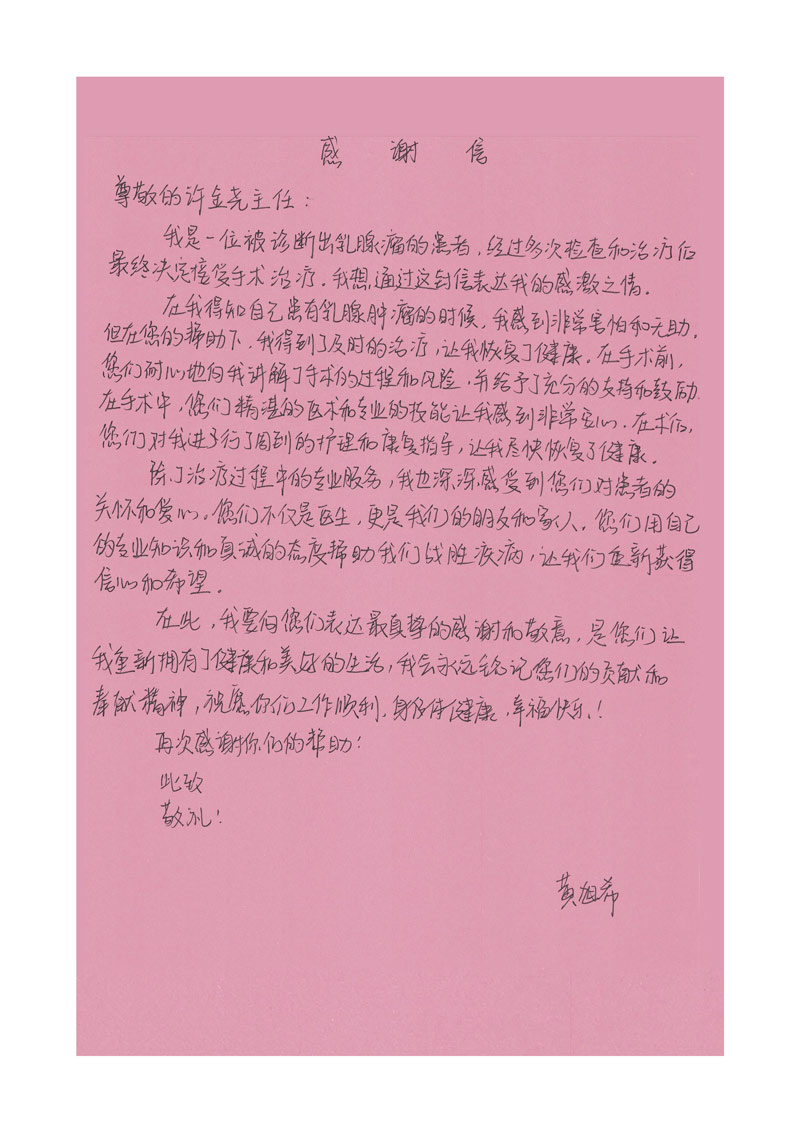 感 谢 信
尊敬的许金尧主任：
我是一位被诊断出乳腺瘤的患者，经过多次检查和治疗后
最终决定接受手术治疗。我想通过这封信表达我的感激之情。
在我得知自己患有乳腺肿瘤的时候，我感到非常害怕和无助。
但在您的帮助下，我得到了及时的治疗，让我恢复了健康。在手术前，
您们耐心地向我讲解了手术的过程和风险，并给予了充分的支持和鼓励。
在手术中，您们精湛的医术和专业的技能让我感到非常安心。在术后，
您们对我进行了周到的护理和康复指导，让我尽快恢复了健康。
除了治疗过程中的专业服务，我也深深感受到您们对患者的
关怀和爱心。您们不仅是医生，更是我们的朋友和家人。您们用自己
的专业知识和真诚的态度帮助我们战胜疾病，让我们重新获得
信心和希望。
在此，我要向您们表达最真挚的感谢和敬意，是您们让
我重新拥有了健康和美好的生活，我会永远铭记您们的贡献和
奉献精神，祝愿你们工作顺利，身体健康，幸福快乐！
再次感谢你们的帮助！
此致
敬礼！
黄旭希